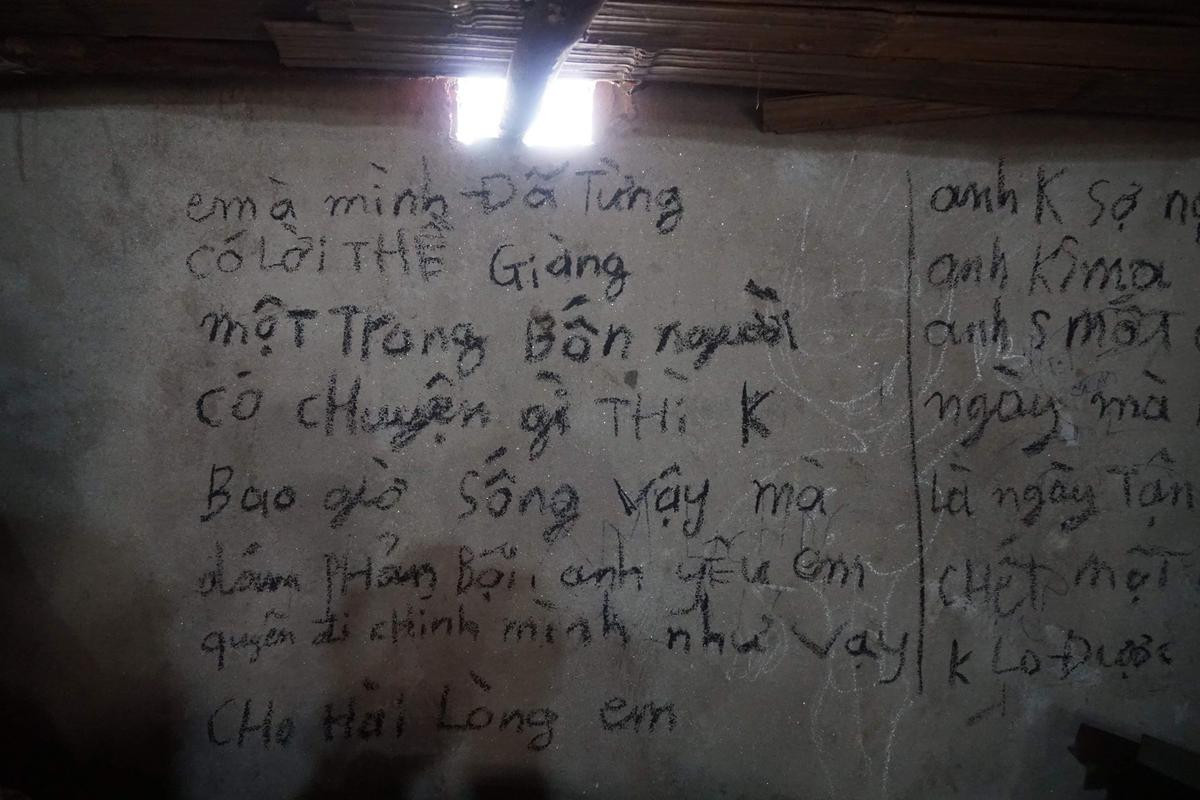 em à mình Đã Từng
có Lời THỀ Giàng
mộT Trong Bốn người
có cHuyện gì THì K
Bao giờ Sống vậy mà
dám PHản Bội, anh yÊu em
quyên đi cHính mình như vậy
CHo Hài Lòng em
anh K Sợ
anh K
anh S mất
ngày mà
là ngày Tận
cHếT mộT
K Lo Được